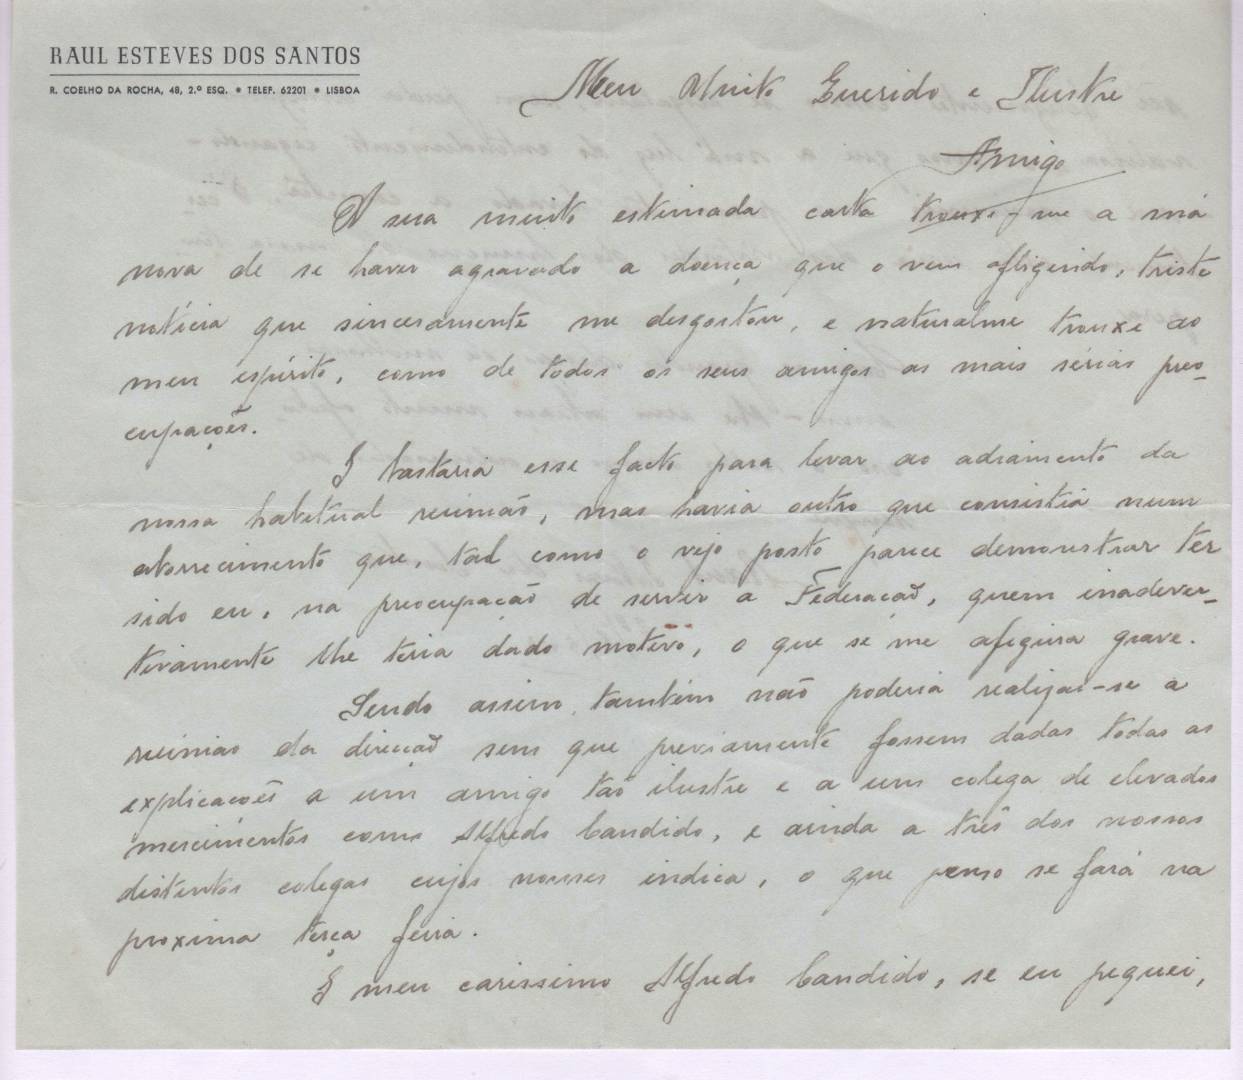 RAUL ESTEVES DOS SANTOS
R. COELHO DA ROCHA, 48, 2.º ESQ. • TELEF. 62201 • LISBOA
Meu Muito Querido e Ilustre
Amigo
A sua muito estimada carta trouxe-me a má
nova de se haver agravado a doença que o vem afligindo, triste
notícia que sinceramente me desgostou, e naturalme trouxe ao
meu espírito, como de todos os seus amigos as mais sérias preo-
cupações.
E bastaria esse facto para levar ao adiamento da
nossa habitual reunião, mas havia outro que consistia num
aborrecimento que, tal como o vejo posto parece demonstrar ter
sido eu, na preocupação de servir a Federação, quem inadver-
tivamente lhe teria dado motivo, o que se me afigura grave.
Sendo assim, também não poderia realizar-se a
reunião da direcção sem que previamente fossem dadas todas as
explicações a um amigo tão ilustre e a um colega de elevados
mercimentos como Alfredo Candido, e ainda a três dos nossos
distintos colegas cujos nomes indica, o que penso se fará na
proxima terça feira.
E meu carissimo Alfredo Candido, se eu pequei,